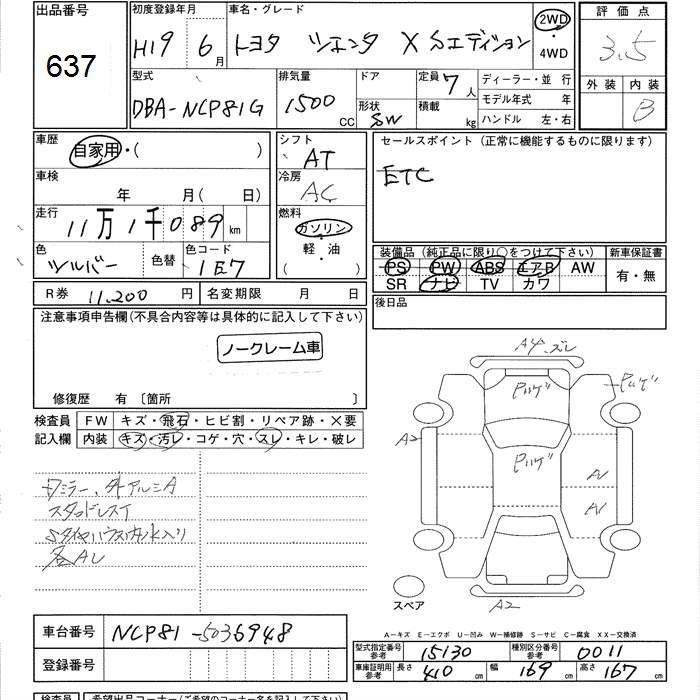 出品番号
637
初度登録年月
H19 6月
車名・グレード
トヨタ シエンタ X Sエディション
2WD
・
4WD
評価点
3.5
外装 内装
B
型式
DBA-NCP81G
排気量
1500 CC
ドア
形状
SW
定員 7人
積載 kg
ディーラー・並行
モデル年式 年
ハンドル 左・右
車歴
自家用・( )
車検
年 月(日)
走行
11万1千089km
色
シルバー
色替
色コード
1E7
シフト
AT
冷房
AC
燃料
ガソリン
・
軽・油
( )
セールスポイント(正常に機能するものに限ります)
ETC
装備品(純正品に限り○をつけて下さい)
PS PW ABS エアB AW
SR ナビ TV カワ
新車保証書
有・無
R券 11,200 円
名変期限 月 日
後日品
注意事項申告欄(不具合内容等は具体的に記入して下さい)
ノークレーム車
修復歴 有〔箇所 〕
検査員
記入欄
FW キズ・飛石・ヒビ割・リペア跡・×要
内装 キズ・汚レ・コゲ・穴・スレ・キレ・破レ
スタッドレスT
各AL
A4.ズレ
A2
A1
A1
A2
スペア
A-キズ E-エクボ U-凹み W-補修跡 S-サビ C-腐食 XX-交換済
車台番号
NCP81-5036948
登録番号
型式指定番号
参考
15130
種別区分番号
参考
0011
車庫証明用
参考
長さ 410 cm
幅 169 cm
高さ 167 cm
検査員
希望出品コーナー(ご希望のコーナー名を記入下さい)